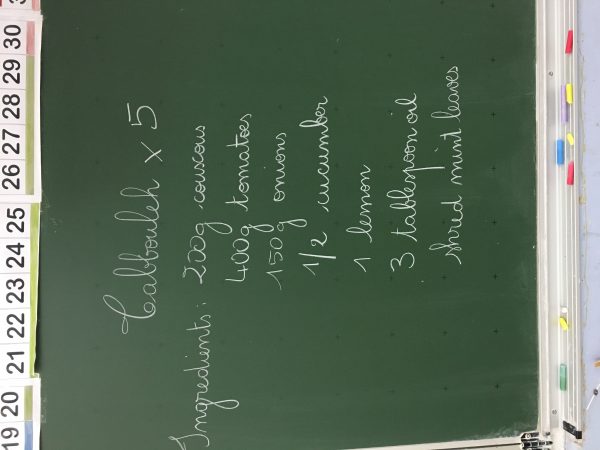 Tabbouleh x 5
Ingredients: 200g couscous
400g tomatoes
150g onions
1/2 cucumber
1 lemon
3 tablespoon oil
shred mint leaves
19 20 21 22 23 24 25 26 27 28 29 30